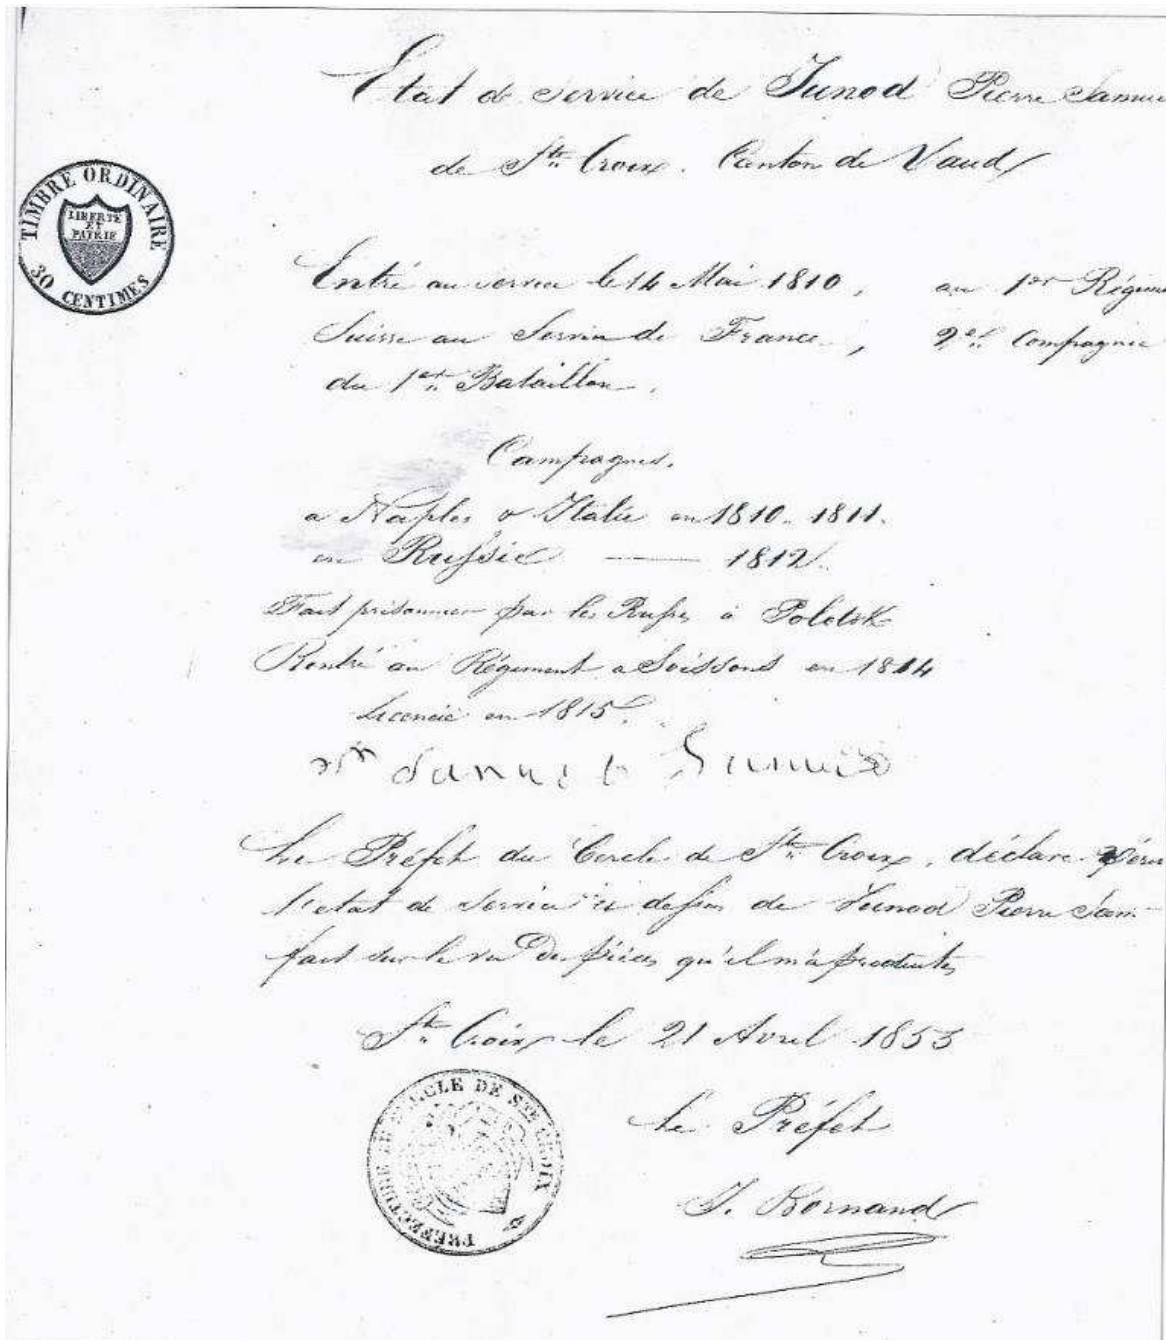 Etat de service de Junod Pierre Samue
de Ste Croix. Canton de Vaud
TIMBRE ORDINAIRE
LIBERTE
ET
PATRIE
30 CENTIMES
Entré au service le 14 Mai 1810, au 1er Régim
Suisse au Service de France, 2e Compagnie
du 1er Bataillon.
Campagnes.
a Naples & Italie en 1810. 1811.
en Russie — 1812.
Fait prisonnier par les Russes à Polotsk
Rentré au Régiment a Soissons en 1814
Licencié en 1815.
Le Préfet du Cercle de Ste Croix, déclare
l'etat de service ci dessus de Junod Pierre Sam
fait sur le vu des pièces qu'il m'a produites
Ste Croix le 21 Avril 1853
PREFECTURE DU CERCLE DE STE CROIX
Le Préfet
J. Bornand